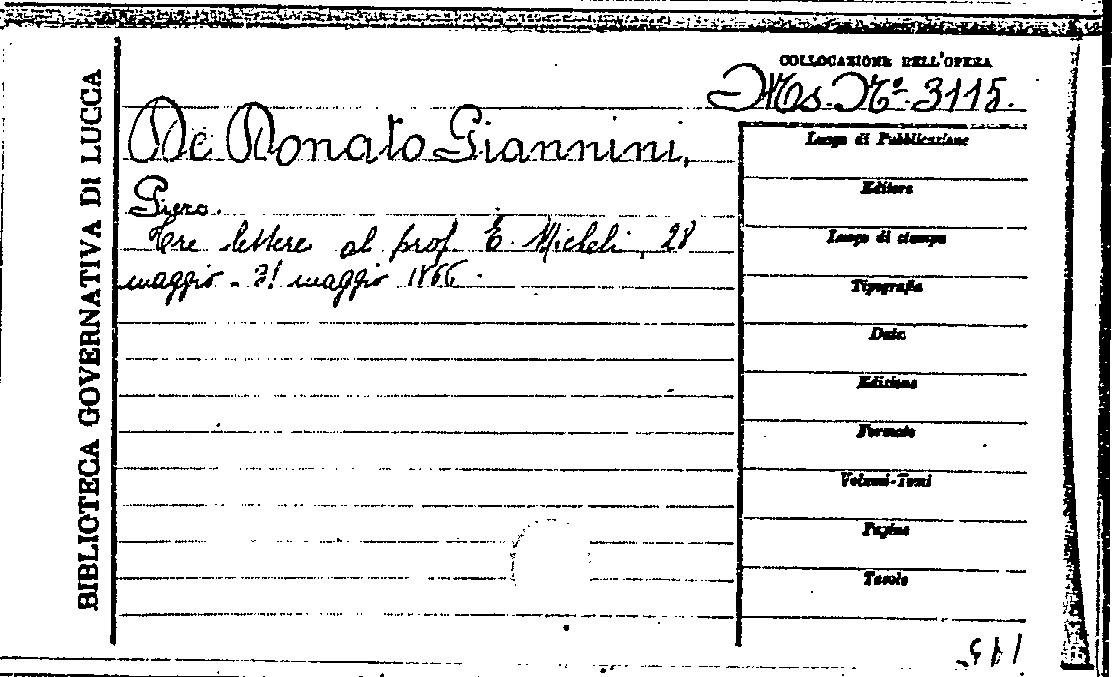 BIBLIOTECA GOVERNATIVA DI LUCCA
COLLOCAZIONE DELL'OPERA
Ms. N.º 3115.
De Donato Giannini,
Piero.
Tre lettere al prof. E. Micheli, 28
maggio - 31 maggio 1866.
Luogo di Pubblicazione
Editore
Luogo di stampa
Tipografia
Data
Edizione
Formato
Volumi-Tomi
Pagine
Tavole